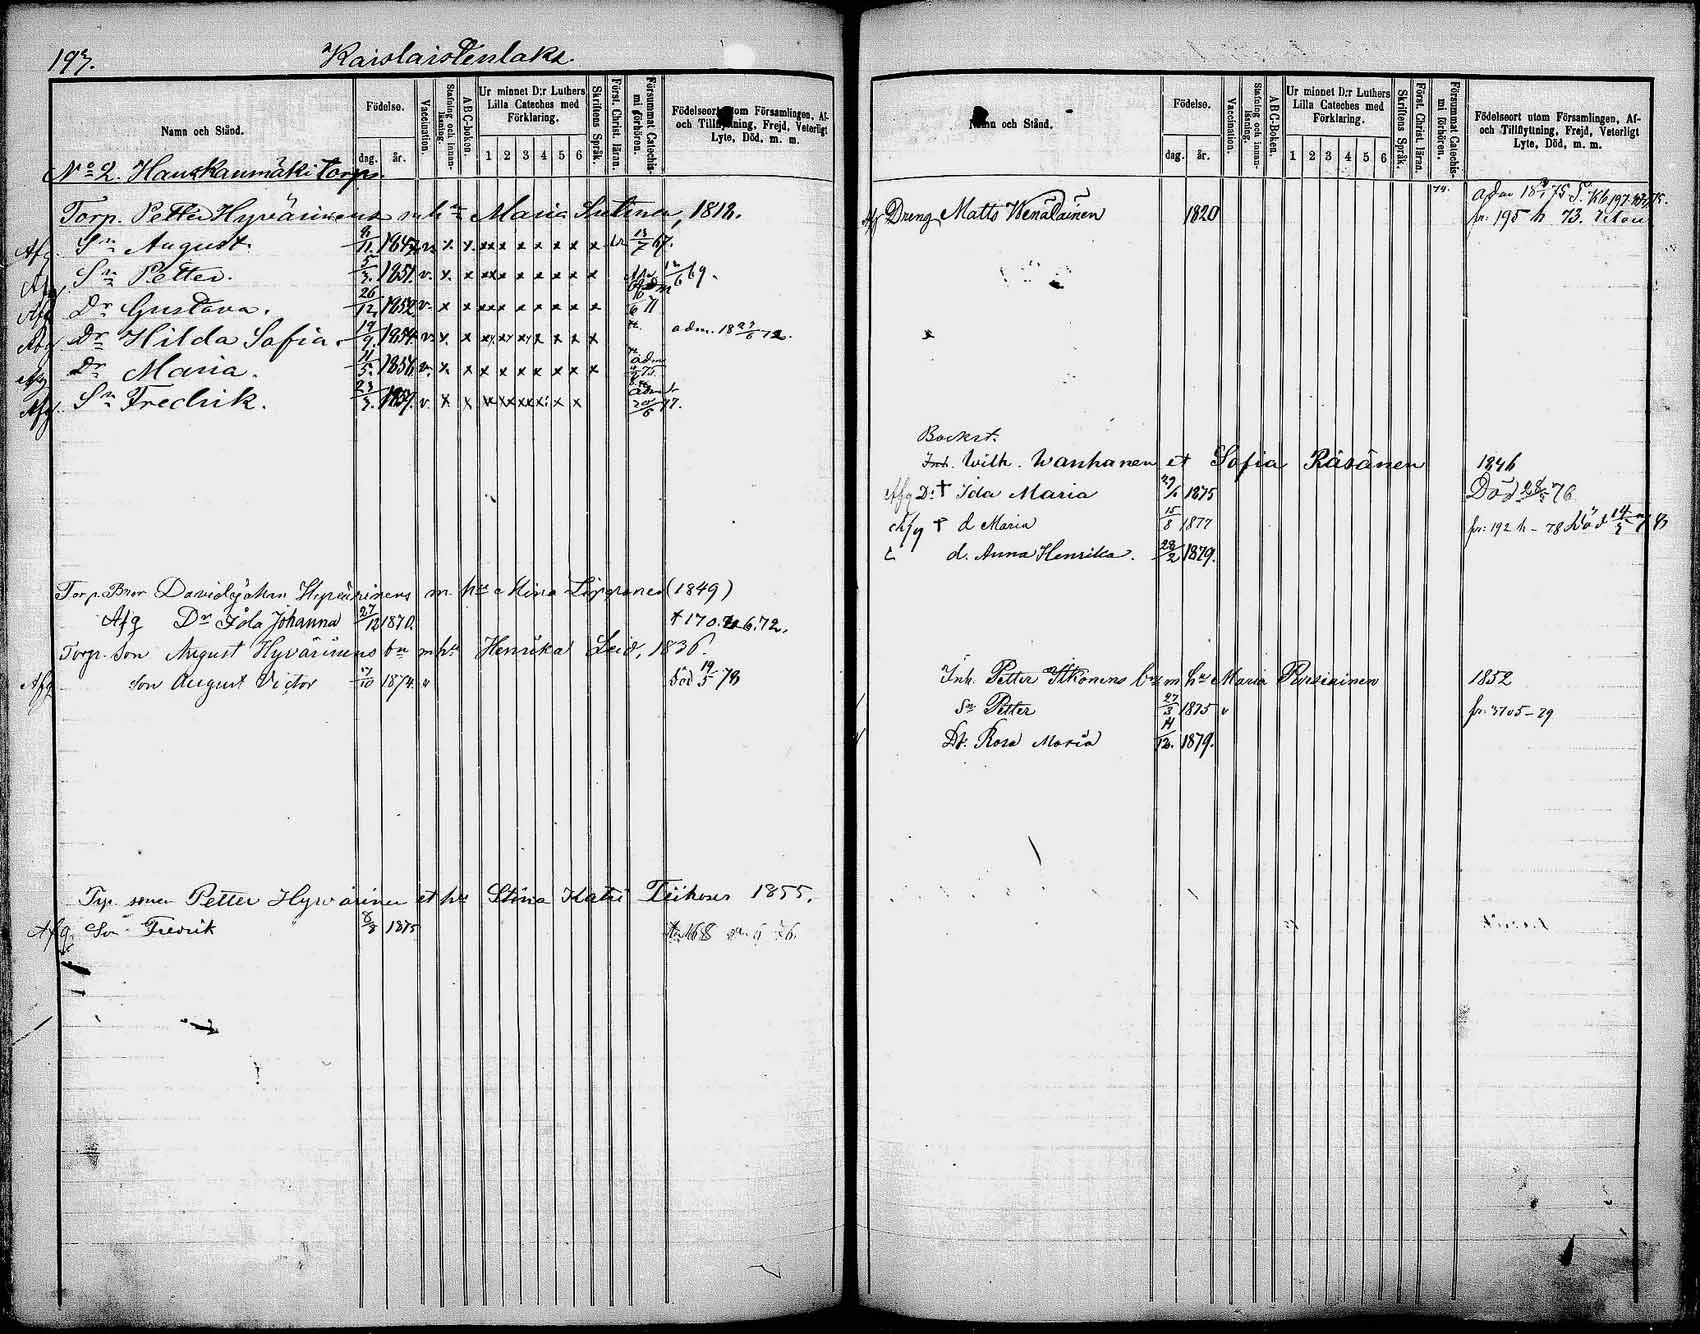 197. Kaislaistenlaks.
Namn och Stånd.
Födelse.
dag. år.
Vaccination.
Stafning och innan-läsning.
A B C-boken.
Ur minnet D:r Luthers Lilla Cateches med Förklaring.
1 2 3 4 5 6
Skriftens Språk.
Först. Christ. läran.
Försummat Catechis-mi förhören.
Födelseort utom Församlingen, Af- och Tillflyttning, Frejd, Veterligt Lyte, Död, m. m.
No 2. Haukkanmäki Torp.
Torp. Petter Hyvärinens m hu Maria Sutinen, 1812.
Afg Sn August. 8/11 1847 v. x x x x x x x x x 13/7 67.
Afg Sn Petter. 5/3 1851. v. x. x x x x x x x x 12/6 69.
Afg Dr Gustava. 26/12 1852 v. x x x x x x x x x 10/6 71
Afg Dr Hilda Sofia. 19/9 1854 v. x x x x x x x x x adm. 18 23/6 72.
Afg Dr Maria. 11/5 1856 v. x x x x x x x x x adm 75.
Afg. Sn Fredrik. 23/3 1859. v x x x x x x x x adm 20/6 77.
Torp. Bror David Johan Hyvärinens m. hu Stina Lipponen (1849)
Afg Dr Ida Johanna 27/12 1870. + 170. 6. 72.
Torp. Son August Hyvärinens bn m hu Henrika Leid. 1836.
Afg. Son August Victor 17/10 1874. v död 19/5 78
Torp. sonen Petter Hyvärinen et hu Stina Kaisa Tiihonen 1855.
Afg. Son Fredrik 8/8 1875 168 76.
Namn och Stånd.
Födelse.
dag. år.
Vaccination.
Stafning och innan-läsning.
A B C-Boken.
Ur minnet D:r Luthers Lilla Cateches med Förklaring.
1 2 3 4 5 6
Skriftens Språk.
Först. Christ. läran.
Försummat Catechis-mi förhören.
Födelseort utom Församlingen, Af- och Tillflyttning, Frejd, Veterligt Lyte, Död, m. m.
Afg Dreng Matts Wenäläinen 1820 fr. 195 h. 73.
Backst.
Inh. Wilh. Wanhanen et Sofia Räsänen 1846
Afg D: + Ida Maria 29/1 1875 Död 28/5 76
Afg + d Maria 15/8 1877 fr: 192 h - 78 död 14/5 78
d. Anna Henrika. 28/2 1879.
Inh. Petter Itkonens bn m hu Maria Rusiainen 1852
Sn Petter 27/3 1875 v
Dr. Rosa Maria 14/12. 1879.